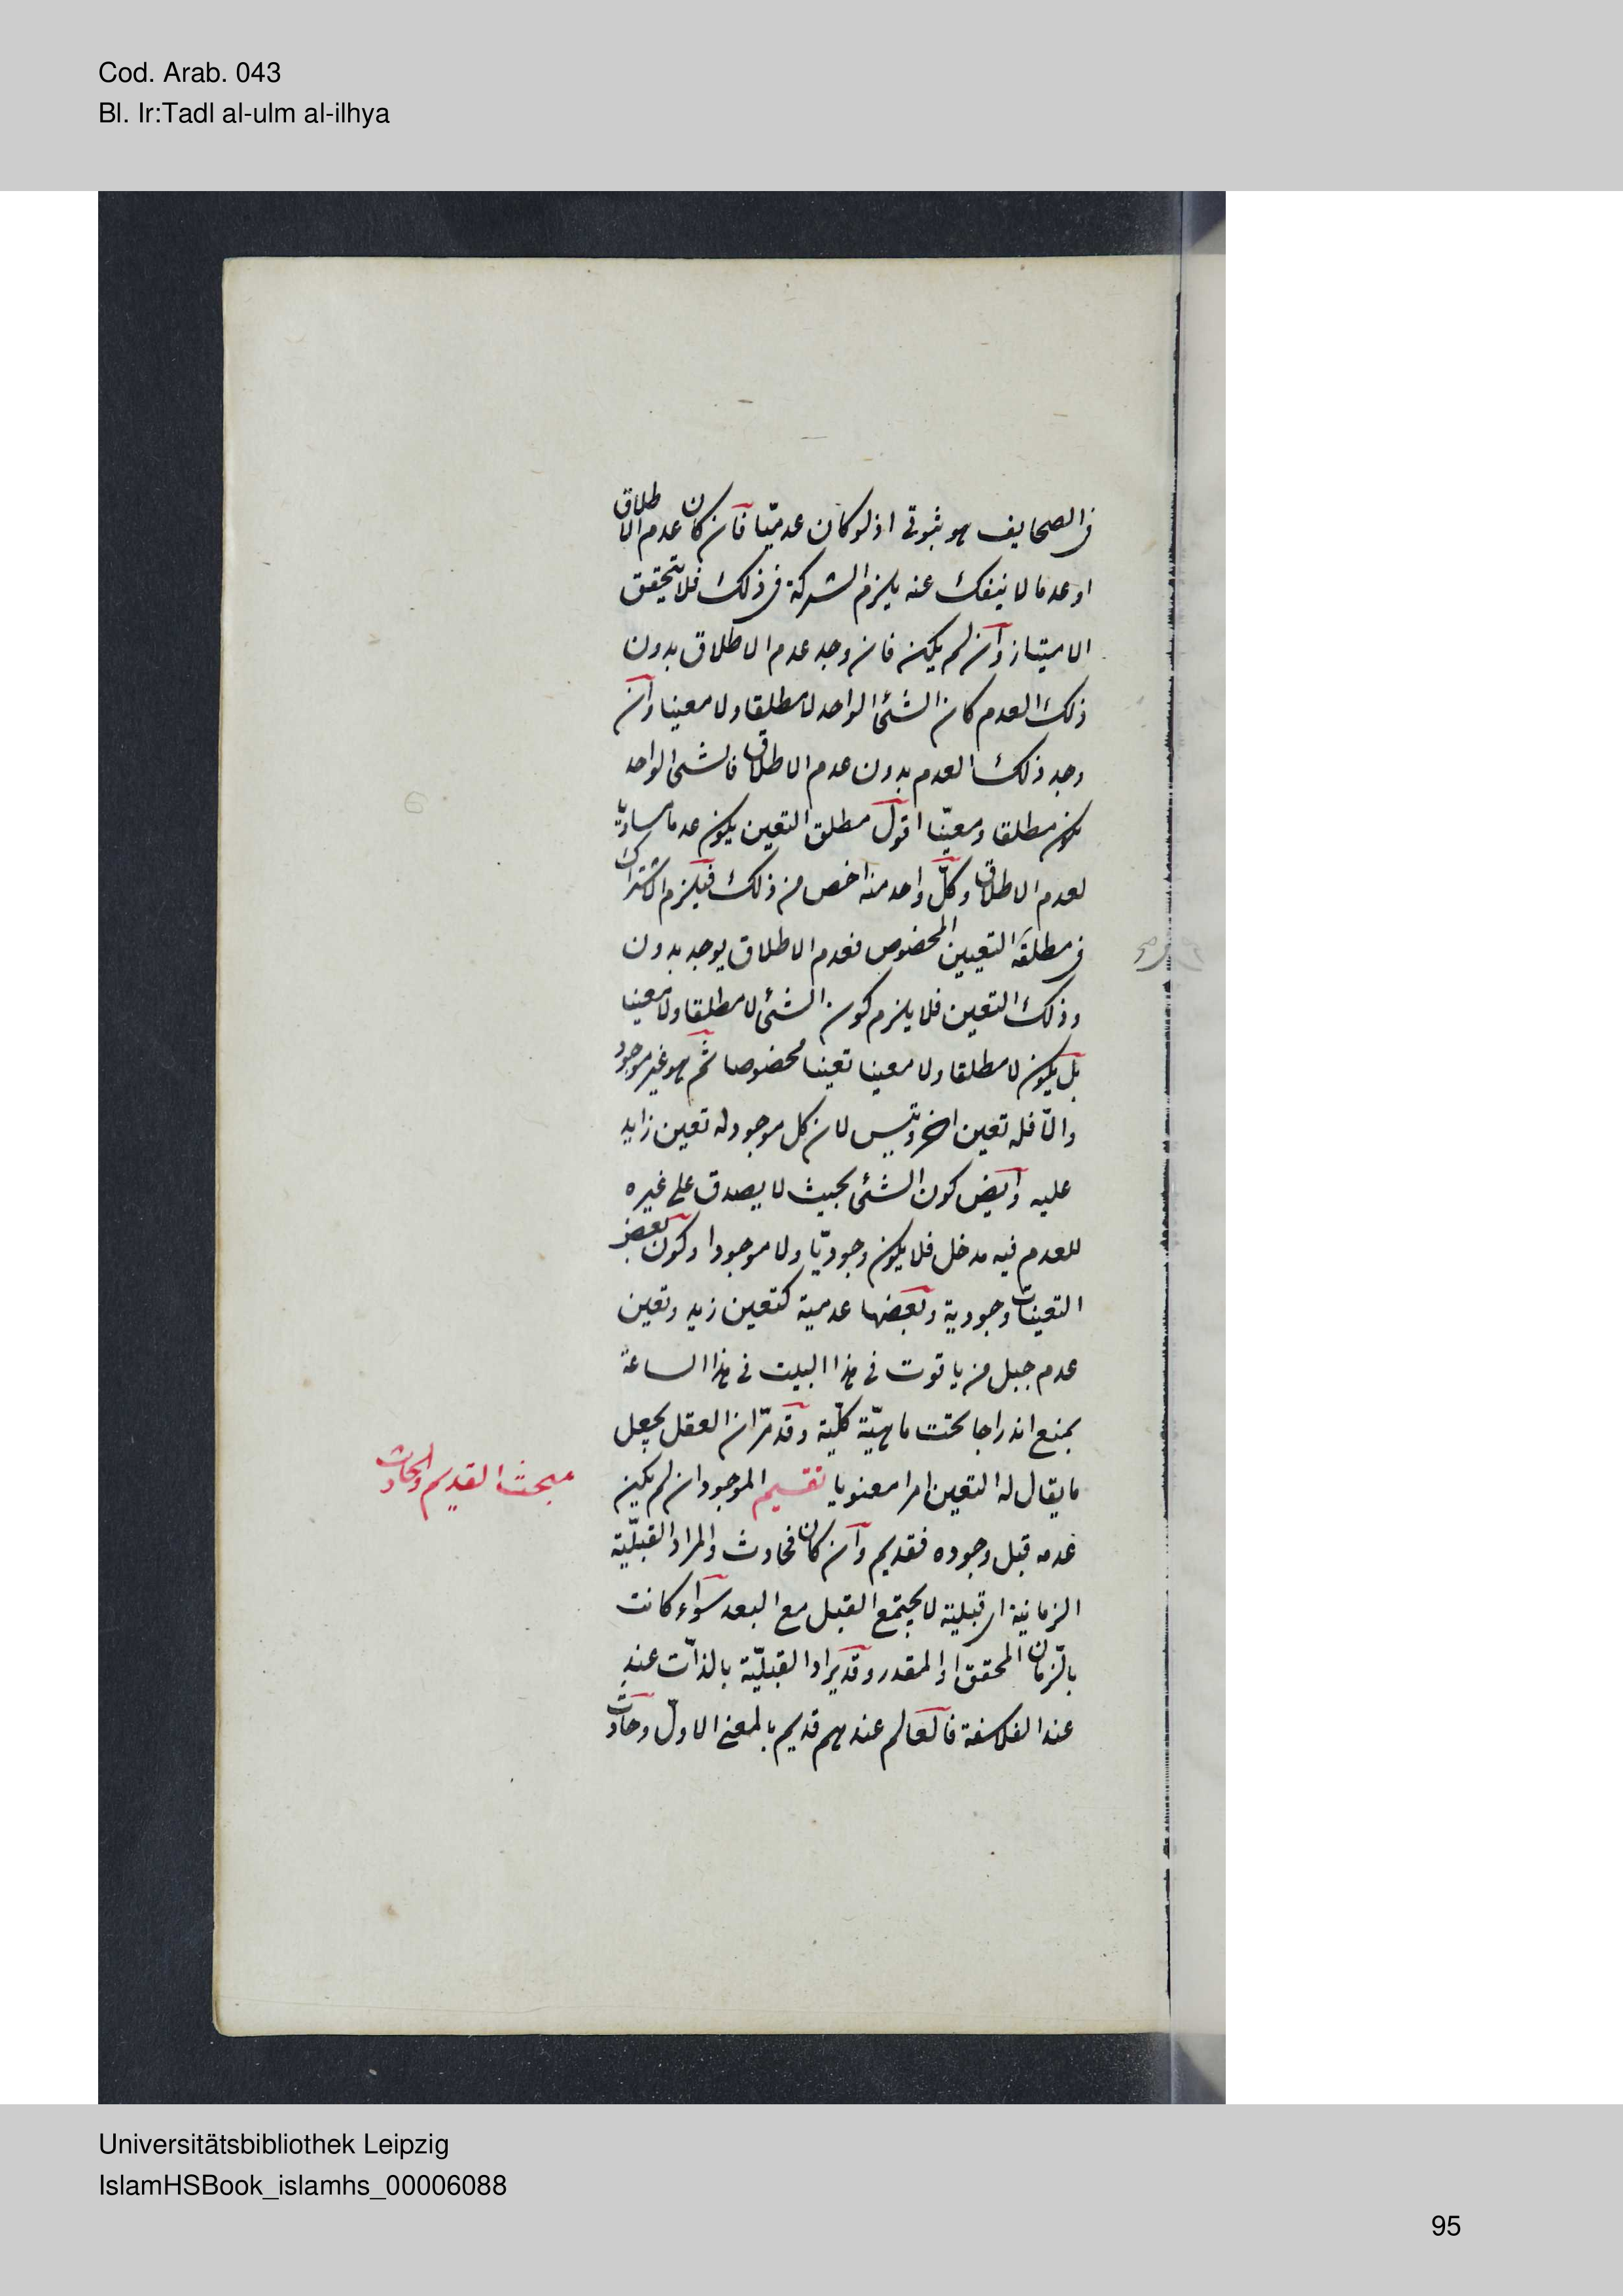 Cod. Arab. 043
Bl. Ir:Tadl al-ulm al-ilhya
فى الصحايف هو ثبوتى اذ لو كان عدميّا فان كان عدم الاطلاق
او عدما لا ينفك عنه يلزم الشركة فى ذلك فلا يتحقق
الامتياز وان لم يكن فان وجد عدم الاطلاق بدون
ذلك العدم كان الشئ الواحد لا مطلقا ولا معينا وان
وجد ذلك العدم بدون عدم الاطلاق فالشئ الواحد
يكون مطلقا ومعيّنا اقول مطلق التعين يكون عدما مساويا
لعدم الاطلاق وكلّ واحد منه اخص من ذلك فيلزم الاشتراك
فى مطلقه التعيين المخصوص فعدم الاطلاق يوجد بدون
وذلك التعين فلا يلزم كون الشئ لا مطلقا ولا معينا
بل يكون لا مطلقا ولا معينا تعينا مخصوصا ثم هو غير موجود
والّا فله تعين اخر ويتس لان كل موجود له تعين زايد
عليه وايض كون الشئ بحيث لا يصدق على غيره
للعدم فيه مدخل فلا يكون وجوديّا ولا موجودا وكون بعض
التعينات وجودية وبعضها عدمية كتعين زيد وتعين
عدم جبل من ياقوت فى هذا البيت فى هذا الساعة
بمنع اندراجا تحت ماهيّة كلّية وقد مرّ ان العقل يجعل
ما يقال له التعين امرا معنويا تقسيم الموجود ان لم يكن
مبحث القديم والحادث
عدمه قبل وجوده فقديم وان كان فحادث والمراد القبليّة
الزمانية اى قبلية لا يجتمع القبل مع البعد سواء كانت
بالزمان المحقق او المقدر وقد يراد القبليّة بالذات عند
عند الفلاسفة فالعالم عندهم قديم بالمعنى الاول وحادث
Universitätsbibliothek Leipzig
IslamHSBook_islamhs_00006088
95